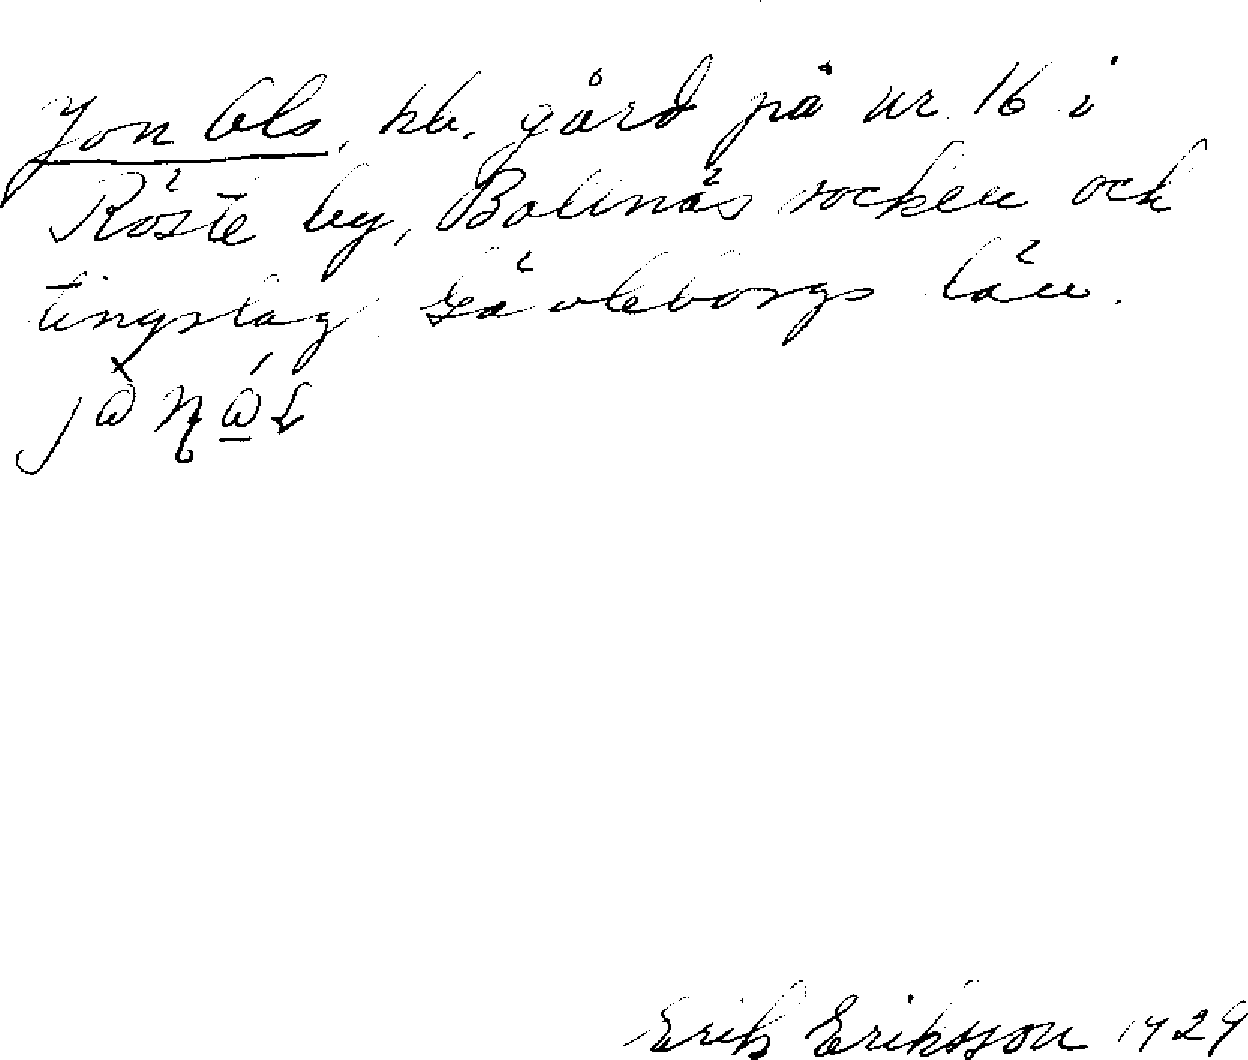 Jon Ols, hb. gård på nr 16 i
Röste by, Bollnäs socken och
tingslag Gävleborgs län.
Erik Eriksson 1929